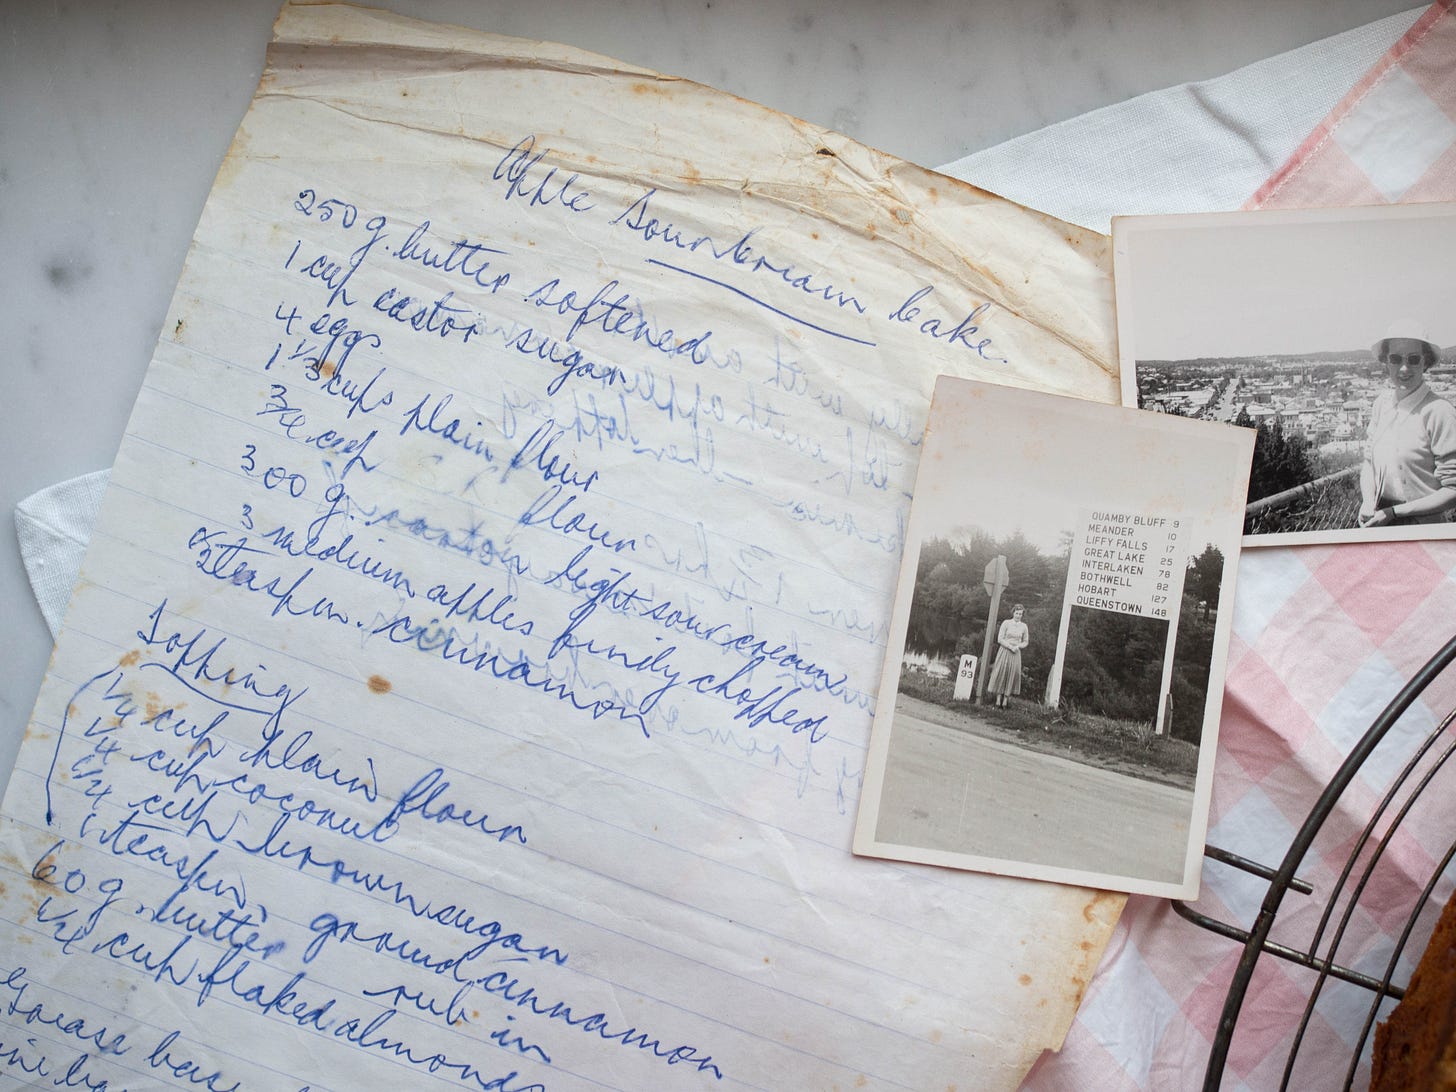 Apple Sourcream Cake.
250 g. butter softened
1 cup castor sugar
4 eggs.
1 1/3 cups plain flour
cup flour
300 g. light sour cream
3 medium apples finely chopped
teaspn. cinnamon
Topping
1/4 cup plain flour
1/4 cup coconut
cup brown sugar
1 teaspn. ground cinnamon
60 g. butter rub in
cup flaked almonds
Grease base
QUAMBY BLUFF 9
MEANDER 10
LIFFY FALLS 17
GREAT LAKE 25
INTERLAKEN 78
BOTHWELL 82
HOBART 127
QUEENSTOWN 148
M
93